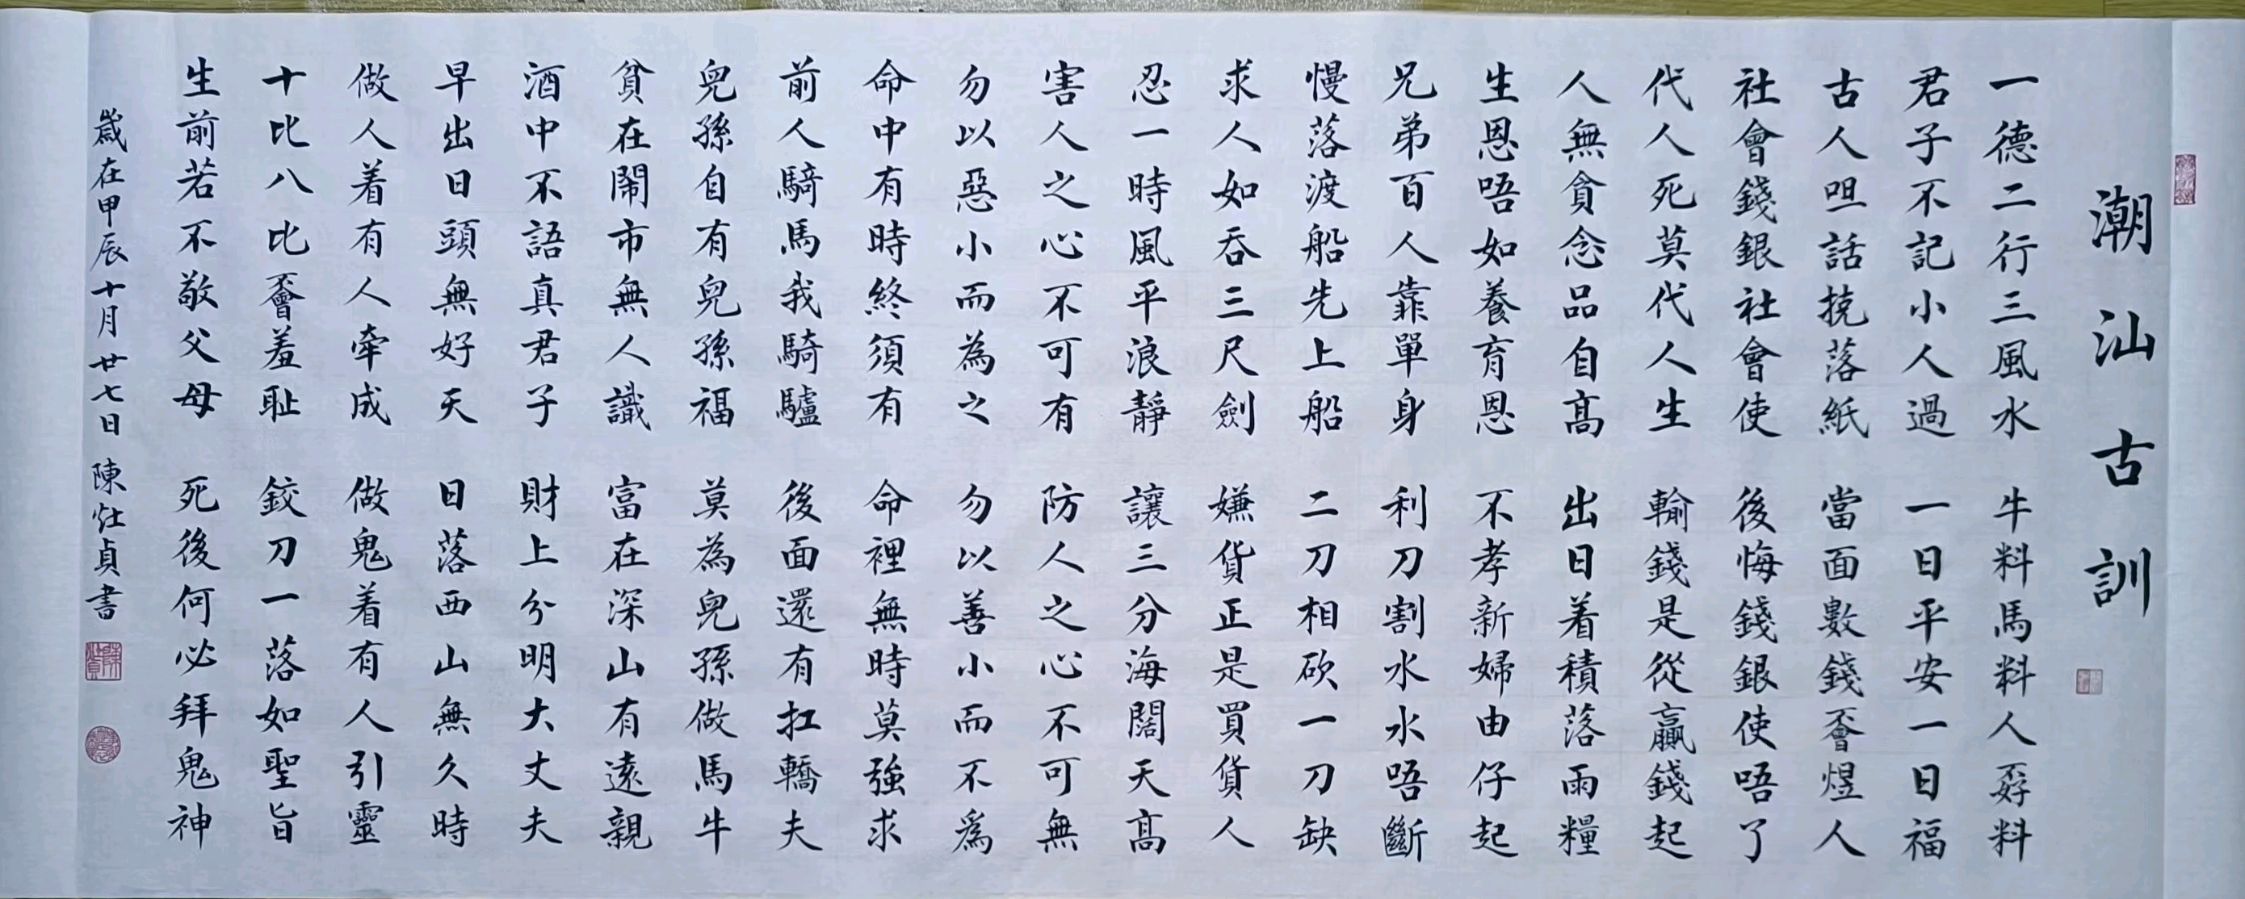 潮汕古訓
一德二行三風水 牛料馬料人孬料
君子不記小人過 一日平安一日福
古人呾話挠落紙 當面數錢嬒煜人
社會錢銀社會使 後悔錢銀使唔了
代人死莫代人生 輸錢是從贏錢起
人無貪念品自高 出日着積落雨糧
生恩唔如養育恩 不孝新婦由仔起
兄弟百人靠單身 利刀割水水唔斷
慢落渡船先上船 二刀相砍一刀缺
求人如吞三尺劍 嫌貨正是買貨人
忍一時風平浪靜 讓三分海闊天高
害人之心不可有 防人之心不可無
勿以惡小而為之 勿以善小而不為
命中有時終須有 命裡無時莫強求
前人騎馬我騎驢 後面還有扛轎夫
兒孫自有兒孫福 莫為兒孫做馬牛
貧在鬧市無人識 富在深山有遠親
酒中不語真君子 財上分明大丈夫
早出日頭無好天 日落西山無久時
做人着有人牽成 做鬼着有人引靈
十比八比嬒羞耻 鉸刀一落如聖旨
生前若不敬父母 死後何必拜鬼神
歲在甲辰十月廿七日 陳灶貞書